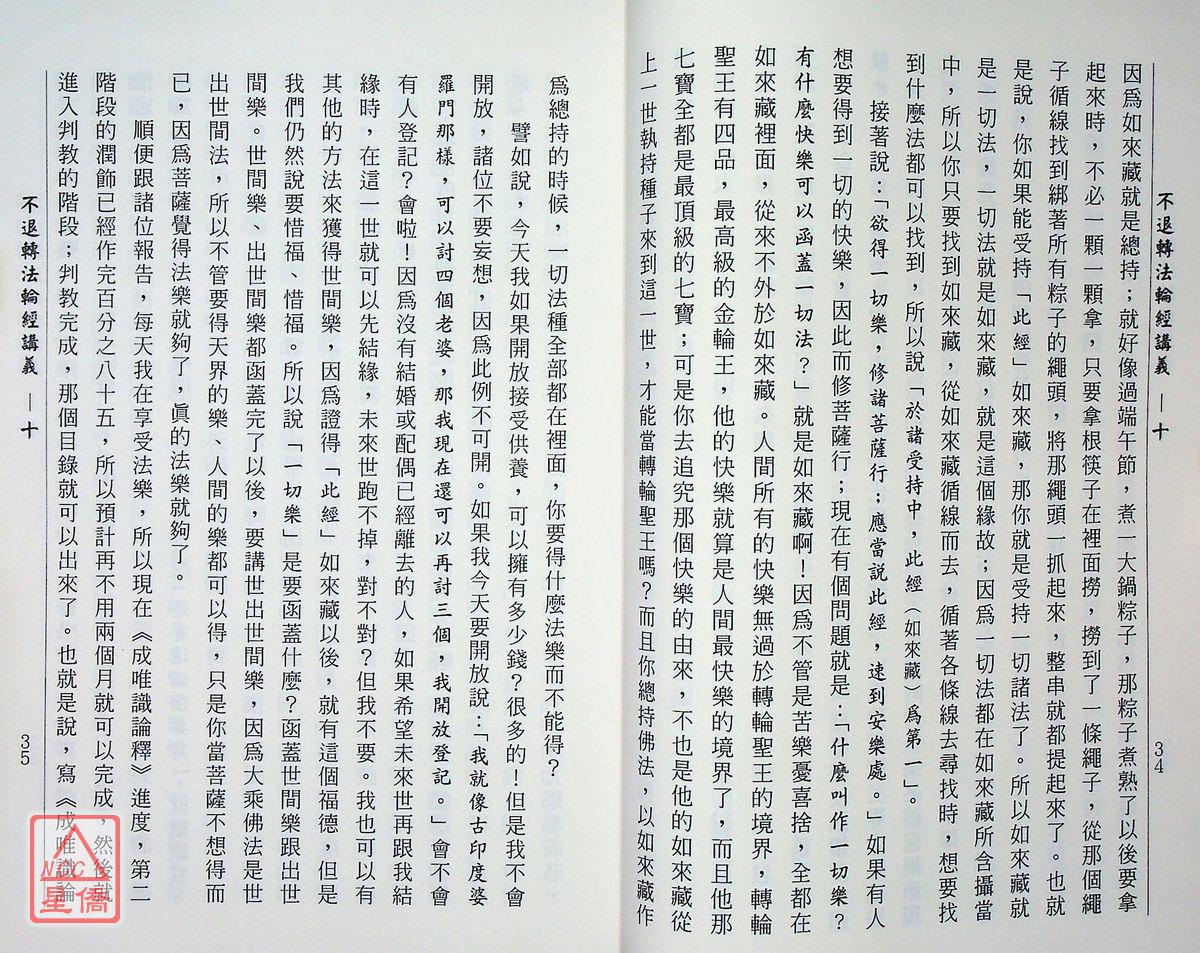 不退轉法輪經講義 — 十
34
因爲如來藏就是總持；就好像過端午節，煮一大鍋粽子，那粽子煮熟了以後要拿
起來時，不必一顆一顆拿，只要拿根筷子在裡面撈，撈到了一條繩子，從那個繩
子循線找到綁著所有粽子的繩頭，將那繩頭一抓起來，整串就都提起來了。也就
是說，你如果能受持「此經」如來藏，那你就是受持一切諸法了。所以如來藏就
是一切法，一切法就是如來藏，就是這個緣故；因爲一切法都在如來藏所含攝當
中，所以你只要找到如來藏，從如來藏循線而去，循著各條線去尋找時，想要找
到什麼法都可以找到，所以說「於諸受持中，此經（如來藏）爲第一」。
接著說：「欲得一切樂，修諸菩薩行；應當說此經，速到安樂處。」如果有人
想要得到一切的快樂，因此而修菩薩行；現在有個問題就是：「什麼叫作一切樂？
有什麼快樂可以函蓋一切法？」就是如來藏啊！因爲不管是苦樂憂喜捨，全都在
如來藏裡面，從來不外於如來藏。人間所有的快樂無過於轉輪聖王的境界，轉輪
聖王有四品，最高級的金輪王，他的快樂就算是人間最快樂的境界了，而且他那
七寶全都是最頂級的七寶；可是你去追究那個快樂的由來，不也是他的如來藏從
上一世執持種子來到這一世，才能當轉輪聖王嗎？而且你總持佛法，以如來藏作
爲總持的時候，一切法種全部都在裡面，你要得什麼法樂而不能得？
譬如說，今天我如果開放接受供養，可以擁有多少錢？很多的！但是我不會
開放，諸位不要妄想，因爲此例不可開。如果我今天要開放說：「我就像古印度婆
羅門那樣，可以討四個老婆，那我現在還可以再討三個，我開放登記。」會不會
有人登記？會啦！因爲沒有結婚或配偶已經離去的人，如果希望未來世再跟我結
緣時，在這一世就可以先結緣，未來世跑不掉，對不對？但我不要。我也可以有
其他的方法來獲得世間樂，因爲證得「此經」如來藏以後，就有這個福德，但是
我們仍然說要惜福、惜福。所以說「一切樂」是要函蓋什麼？函蓋世間樂跟出世
間樂。世間樂、出世間樂都函蓋完了以後，要講世出世間樂，因爲大乘佛法是世
出世間法，所以不管要得天界的樂、人間的樂都可以得，只是你當菩薩不想得而
已，因爲菩薩覺得法樂就夠了，眞的法樂就夠了。
順便跟諸位報告，每天我在享受法樂，所以現在《成唯識論釋》進度，第二
階段的潤飾已經作完百分之八十五，所以預計再不用兩個月就可以完成，然後就
進入判教的階段；判教完成，那個目錄就可以出來了。也就是說，寫《成唯識論
不退轉法輪經講義 — 十
35
NCC
星僑